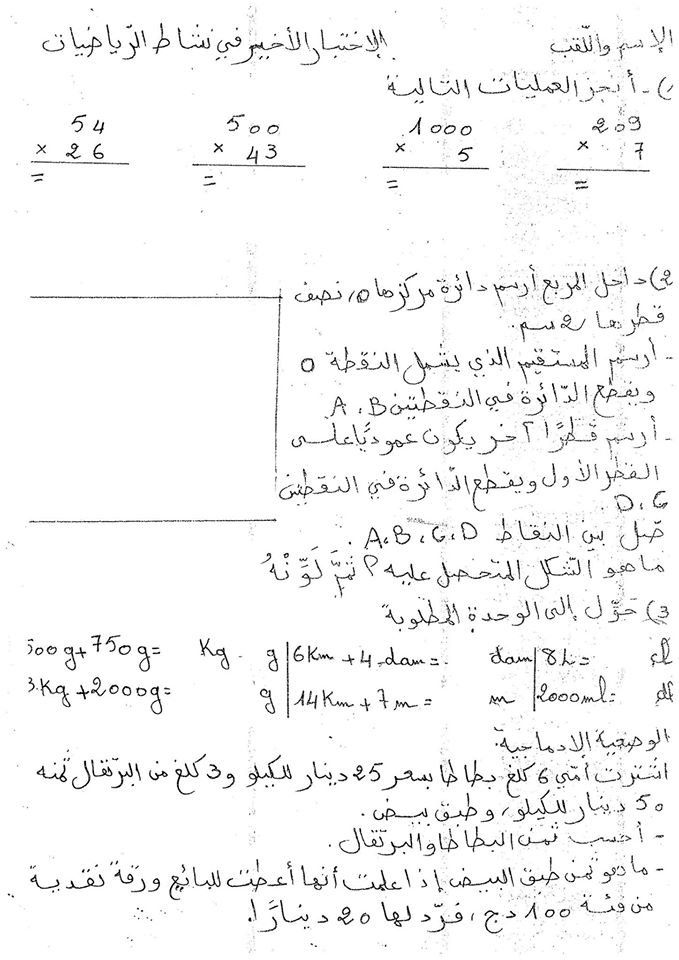 الاسم واللّقب الاختبار الأخير في نشاط الرّياضيات
1) - أنجز العمليات التالية
54 500 1000 209
× 26 × 43 × 5 × 7
= = = =
2) داخل المربع أرسم دائرة مركزها O، نصف
قطرها 2 سم.
- أرسم المستقيم الذي يشمل النقطة O
ويقطع الدّائرة في النقطتين A.B
- أرسم قطرًا آخر يكون عموديًا على
القطر الأول ويقطع الدّائرة في النقطتين
D، C.
صّل بين النقاط A، B، C، D.
ماهو الشّكل المتحصل عليه؟ ثمَّ لَوِّنْهُ
3) حَوِّل إلى الوحدة المطلوبة
500g+750g= Kg g 6Km + 4 dam = dam 8L= cl
3Kg+2000g= g 14Km+7m= m 2000ml= dl
الوضعية الإدماجية.
اشترت أمّي 6 كلغ بطاطا بسعر 25 دينار للكيلو و 3 كلغ من البرتقال ثمنه
50 دينار للكيلو، و طبق بيض.
- أحسب ثمن البطاطا والبرتقال.
- ماهو ثمن طبق البيض إذا علمت أنها أعطت للبائع ورقة نقدية
من فئة 1000 دج، فردّ لها 20 دينارًا.